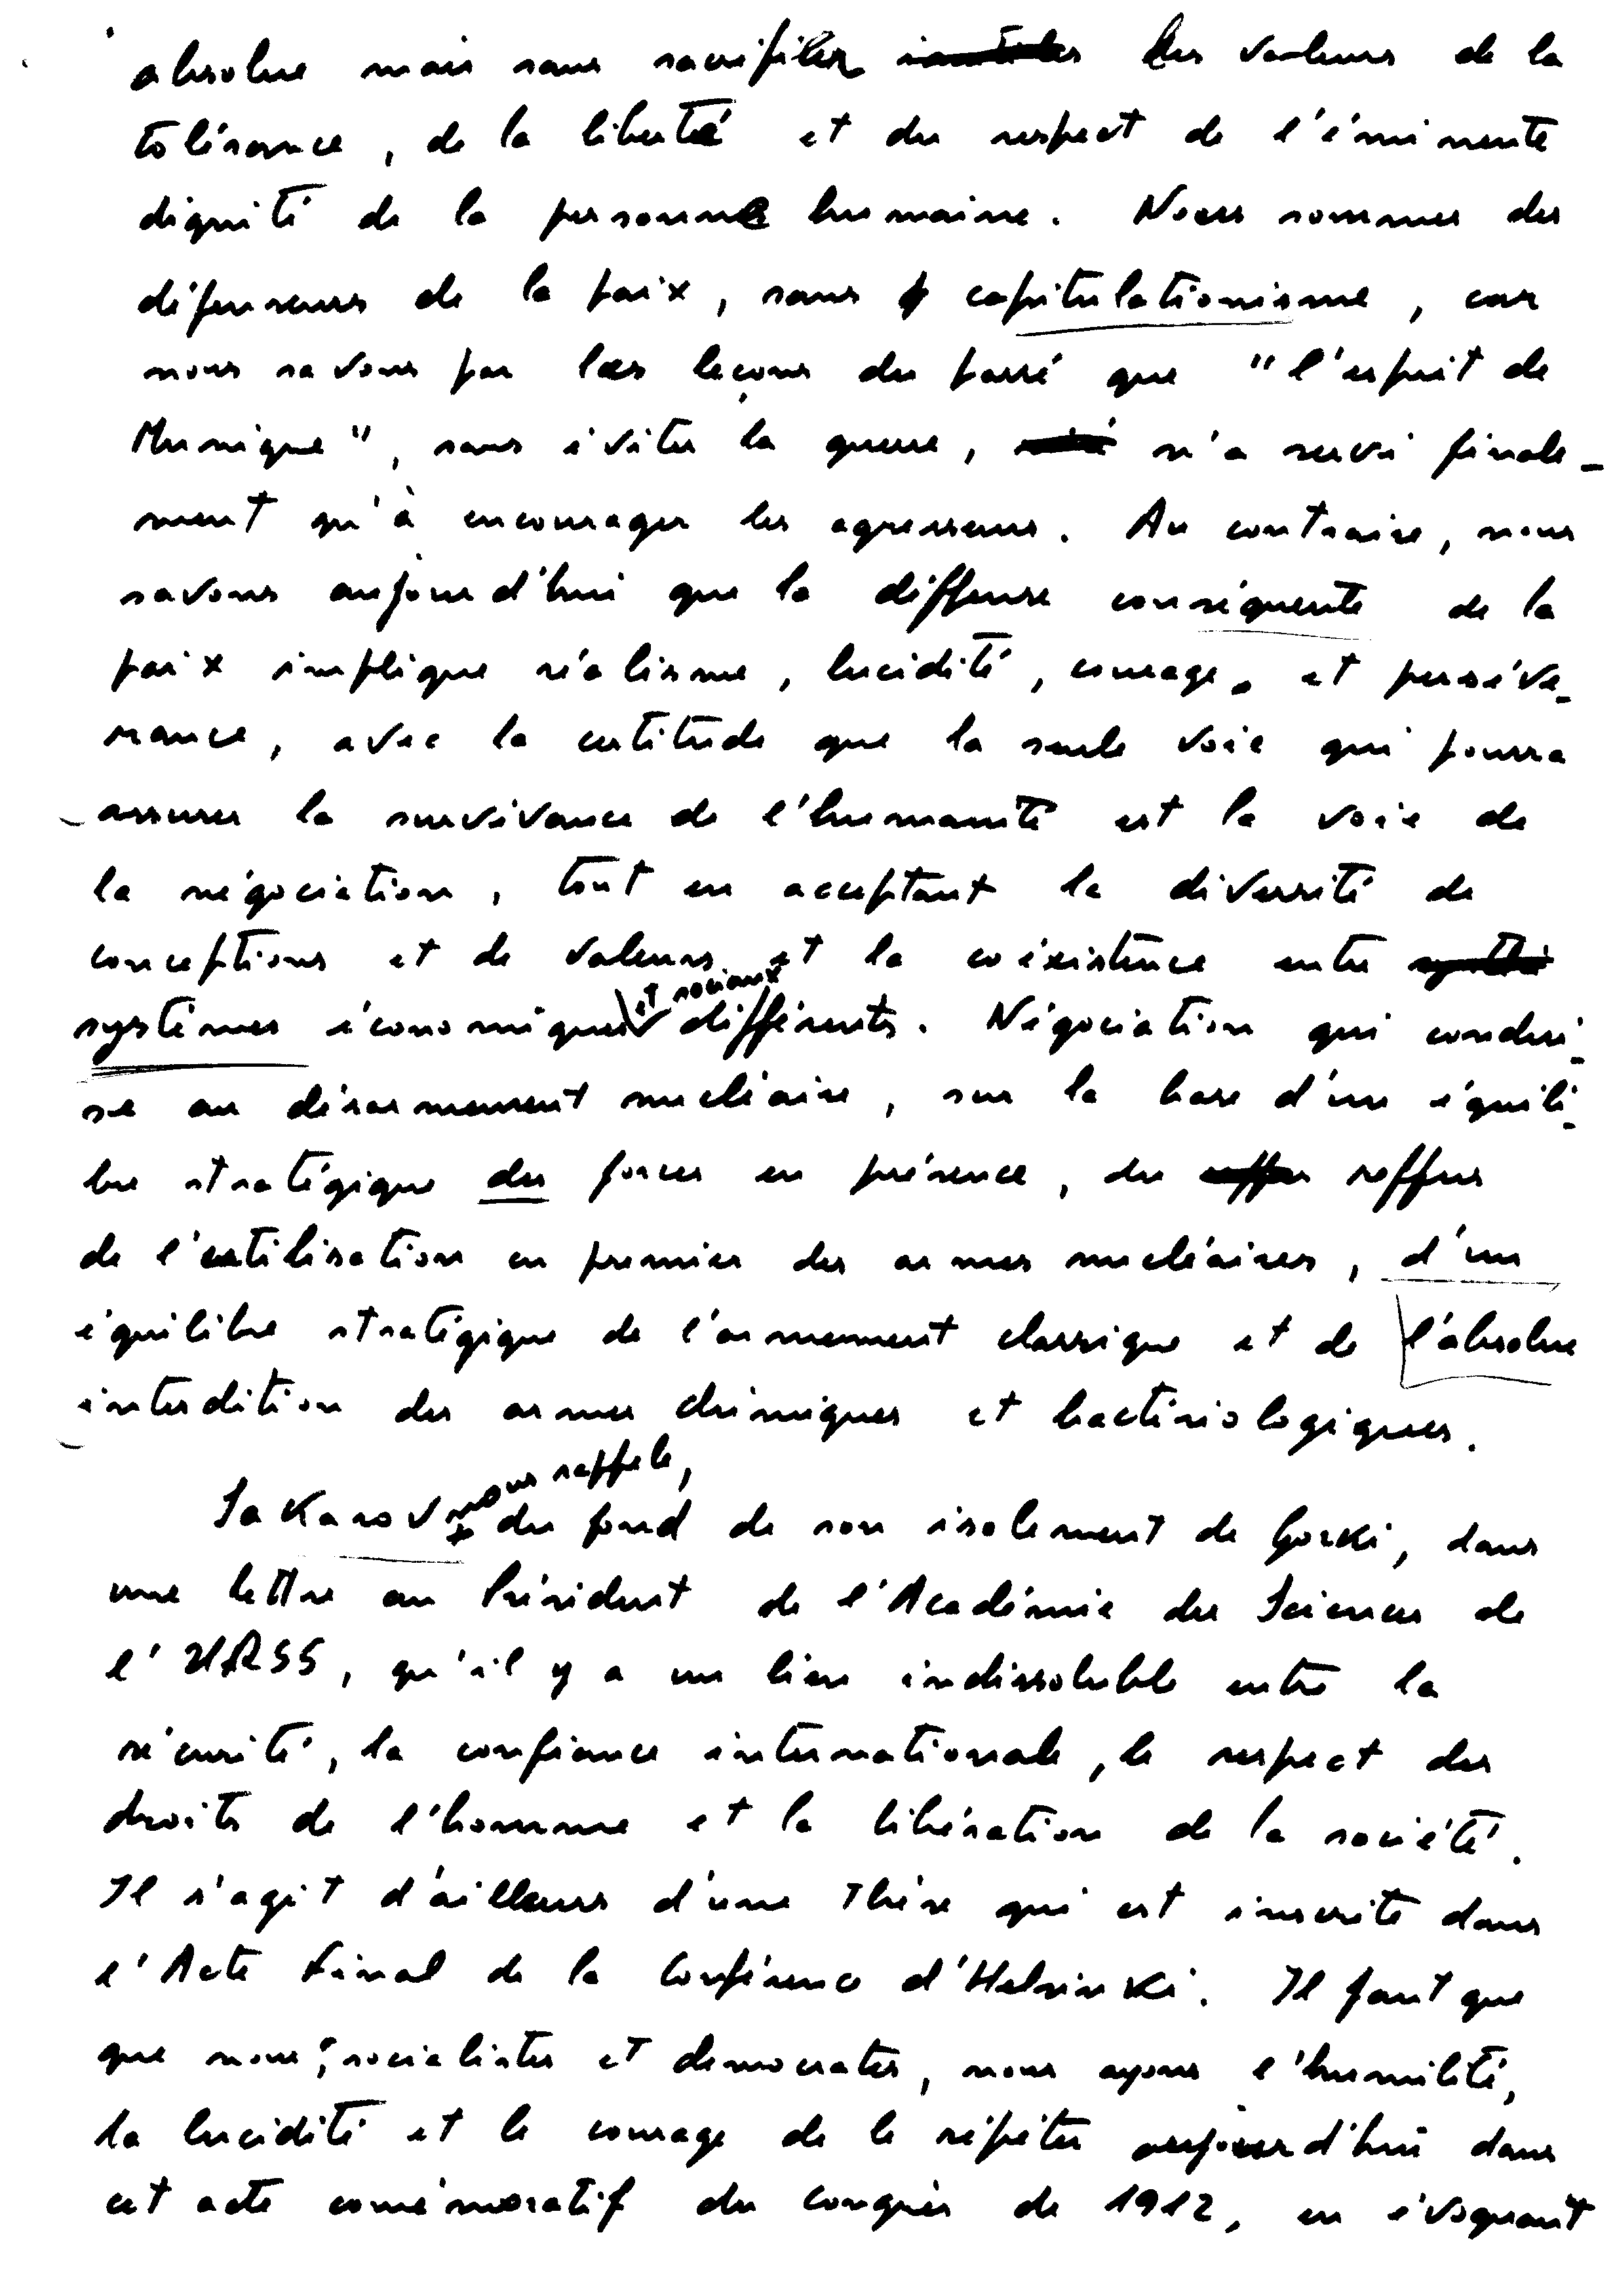 absolue mais sans sacrifier les valeurs de la
tolérance, de la liberté et du respect de l'éminente
dignité de la personne humaine. Nous sommes des
défenseurs de la paix, sans capitulationisme, car
nous savons par les leçons du passé que "l'esprit de
Munique", sans éviter la guerre, n'a servi finale-
ment qu'à encourager les agresseurs. Au contraire, nous
savons aujourd'hui que la deffense conséquente de la
paix implique réalisme, lucidité, courage et perséve-
rance, avec la certitude que la seule voie qui pourra
assurer la survivance de l'humanité est la voie de
la négociation, tout en acceptant la diversité de
conceptions et de valeurs et la coéxistence entre
systèmes économiques et sociaux différents. Négociation qui condui-
se au désarmement nucléaire, sur la base d'un équili-
bre stratégique des forces en présence, du reffus
de l'utilisation en premier des armes nucléaires, d'un
équilibre stratégique de l'armement classique et de l'absolue
interdition des armes chimiques et bactériologiques.
Sakarov nous rappele, du fond de son isolement de Gorki, dans
une lettre au Président de l'Académie des Sciences de
l'URSS, qu'il y a un lien indissoluble entre la
sécurité, la confiance internationale, le respect des
droits de l'homme et la libération de la société.
Il s'agit d'ailleurs d'une thèse qui est inscrite dans
l'Acte Final de la Conférence d'Helsinki. Il faut que
que nous, socialistes et democrates, nous ayons l'humilité,
la lucidité et le courage de le répéter aujourd'hui dans
cet acte comémoratif du congrès de 1912, en évoquant